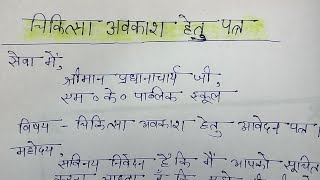 चिकित्सा अवकाश हेतु पत्र
सेवा में,
श्रीमान प्रधानाचार्य जी,
एम० के० पाब्लिक स्कूल
विषय - चिकित्सा अवकाश हेतु आवेदन पत्र।
महोदय,
सविनय निवेदन है कि मैं आपको सूचित